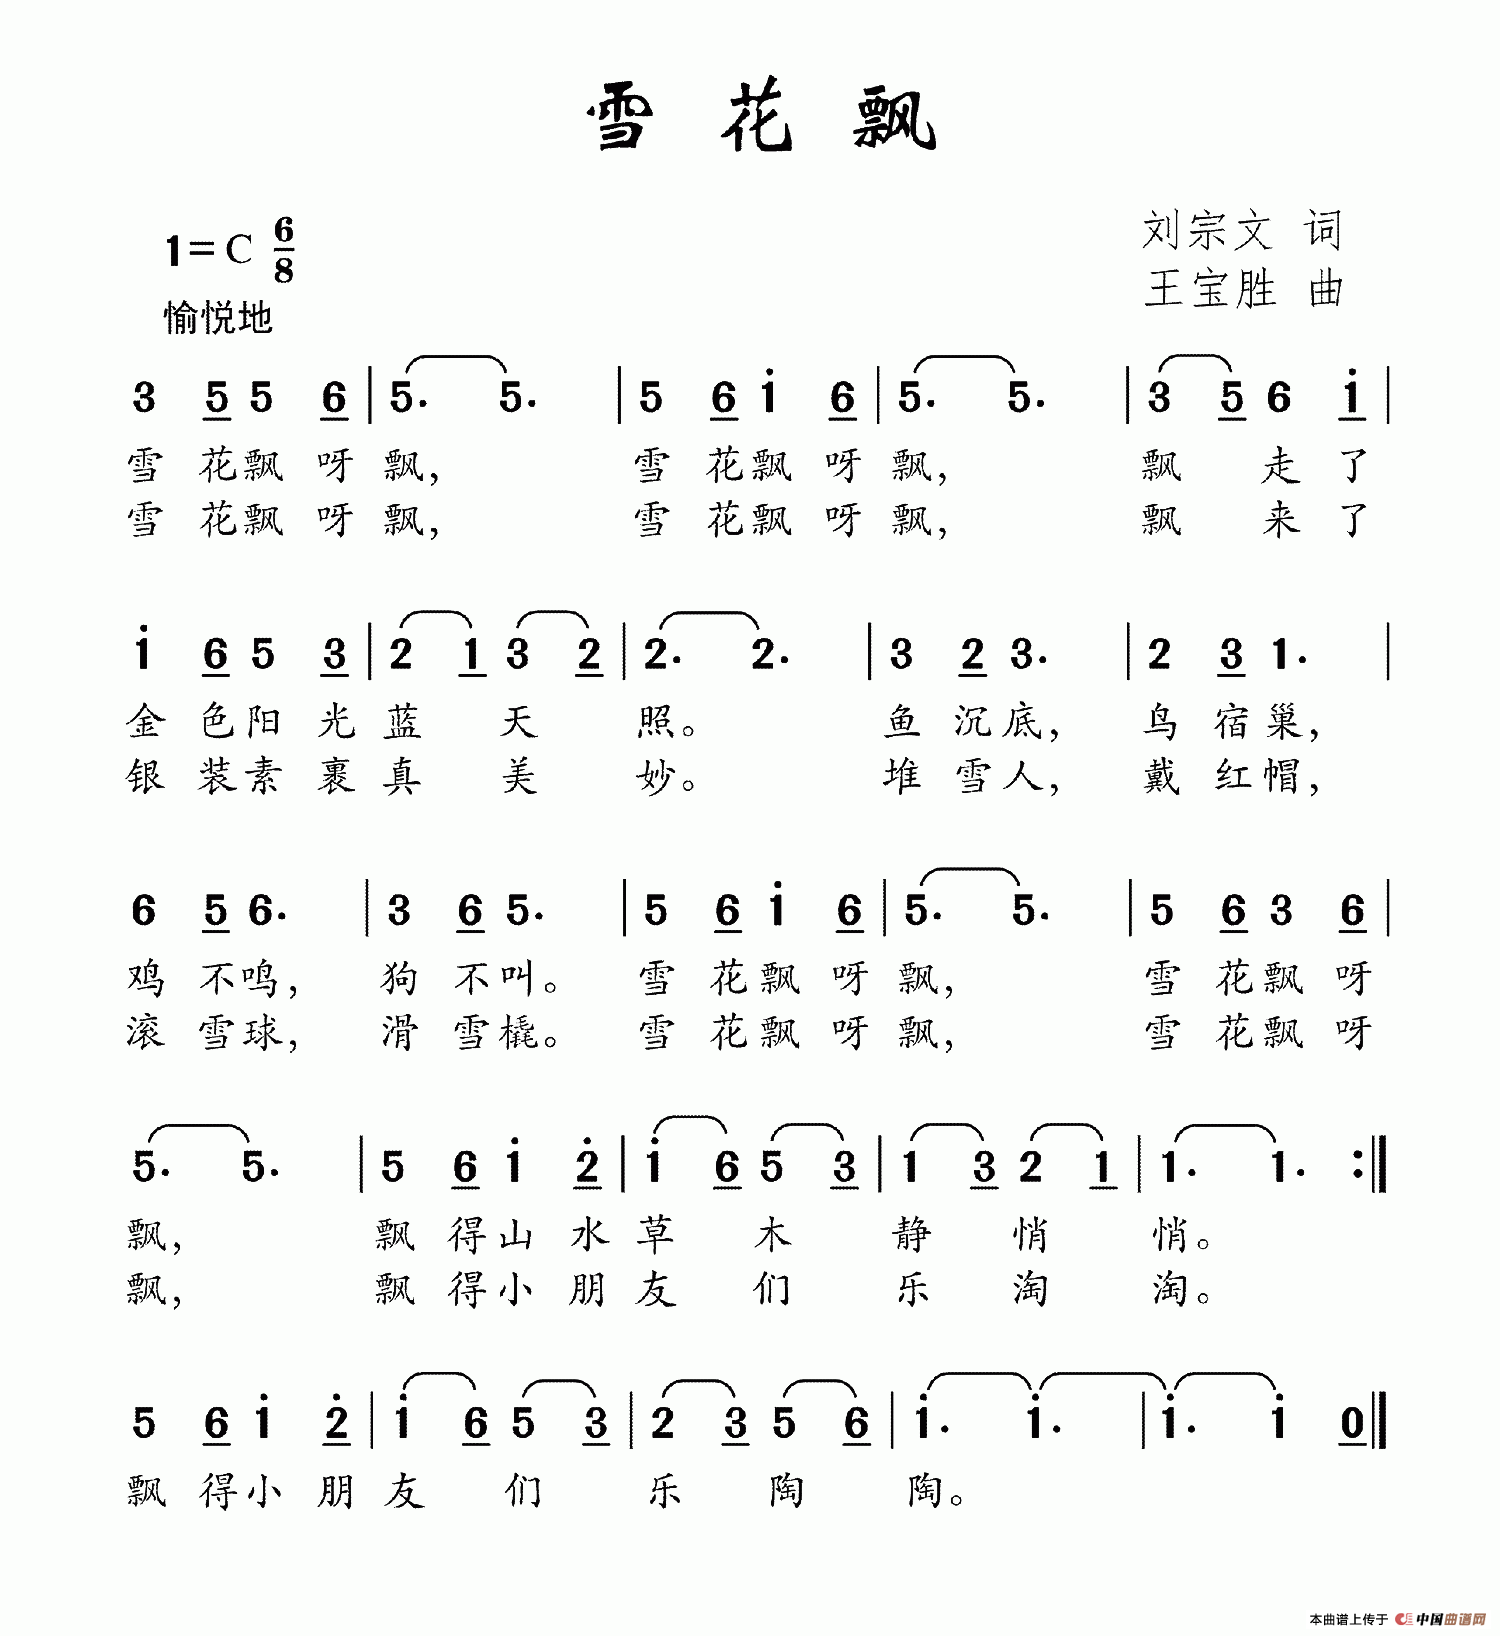 雪花飘
1=C 6/8
刘宗文 词
王宝胜 曲
愉悦地
3 5 5 6 | 5. 5. | 5 6 i 6 | 5. 5. | 3 5 6 i |
雪 花飘 呀 飘， 雪 花飘 呀 飘， 飘 走 了
雪 花飘 呀 飘， 雪 花飘 呀 飘， 飘 来 了
i 6 5 3 | 2 1 3 2 | 2. 2. | 3 2 3. | 2 3 1. |
金 色阳 光 蓝 天 照。 鱼 沉底， 鸟 宿巢，
银 装素 裹 真 美 妙。 堆 雪人， 戴 红帽，
6 5 6. | 3 6 5. | 5 6 i 6 | 5. 5. | 5 6 3 6 |
鸡 不鸣， 狗 不叫。 雪 花飘 呀 飘， 雪 花飘 呀
滚 雪球， 滑 雪橇。 雪 花飘 呀 飘， 雪 花飘 呀
5. 5. | 5 6 i 2 | i 6 5 3 | 1 3 2 1 | 1. 1. :|
飘， 飘 得山 水 草 木 静 悄 悄。
飘， 飘 得小 朋 友 们 乐 淘 淘。
5 6 i 2 | i 6 5 3 | 2 3 5 6 | i. i. | i. i 0 |
飘 得小 朋 友 们 乐 陶 陶。
本曲谱上传于 中国曲谱网